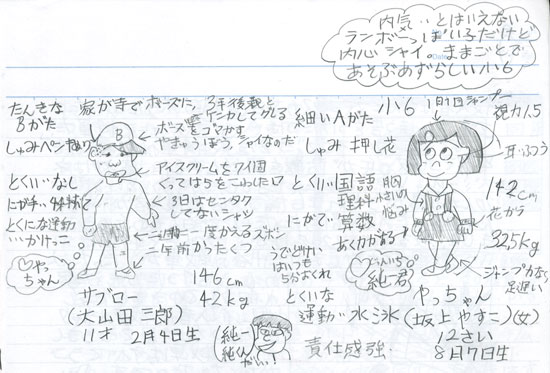 内気‥とはいえない
ランボーっぽい子だけど
内心シャイ。ままごとで
あそぶめずらしい小6
たんきな
Bがた
しゅみペンねり
家が寺でボーズに、3年後親と
ケンカしてグレる
ボーズをゴマかす
やきゅうぼう、シャイなのだ
アイスクリームを7個
くってはらをこわした口
3日はセンタク
してないシャツ
一週間に一度かえるズボン
一年前からのくつ
B
とくい‥なし
とくに運動
‥かけっこ
♡やっ
ちゃん
146cm
42kg
サブロー
(大山田三郎)
11才 2月4日生
細いAがた
しゅみ 押し花
小6
1日1回シャンプー
視力1.5
耳‥ふつう
とくい‥国語
理科
にがて‥算数
胸
小さいのが
悩み
あくりょくがある
142cm
花ガラ
32.5kg
ジャンプ力なく
足遅い
うでどけい
はいつも
5分おくれ
♡いちい
純一君
とくいな
運動‥水泳
責任感強‥
純一
純くん
だい!
やっちゃん
(坂上やすこ)(女)
12さい
8月7日生